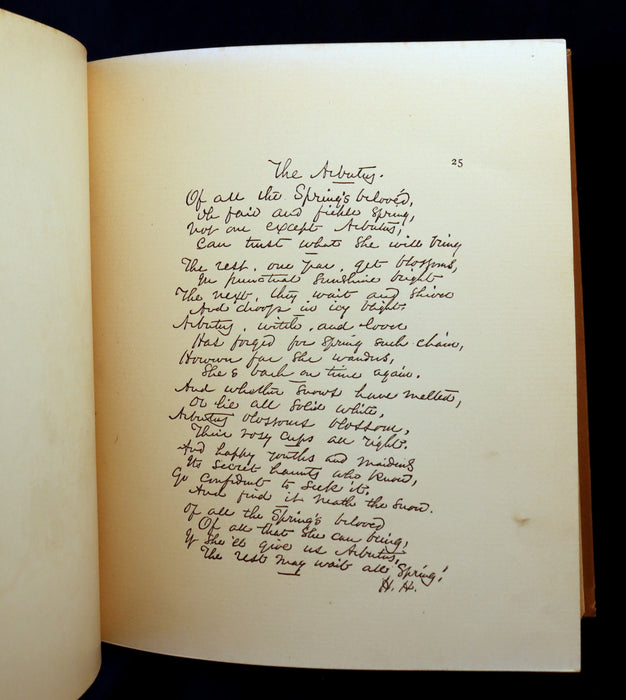 25
The Arbutus.
Of all the Spring's beloved,
Oh fair and fickle Spring,
Not one except Arbutus,
Can trust what she will bring
The rest, one year, get blossoms,
In punctual sunshine bright
The next, they wait and shiver
And droop in icy blight.
Arbutus, witch, and lover
Has forged for Spring such chain,
However far she wanders,
She's back on time again.
And whether snows have melted,
Or lie all solid white,
Arbutus blossoms blossom,
Their rosy cups all right.
And happy youths and maidens
Its secret haunts who know,
Go confident to seek it,
And find it neath the snow.
Of all the Spring's beloved
Of all that she can bring,
If she'll give us Arbutus,
The rest may wait all Spring!
H. H.